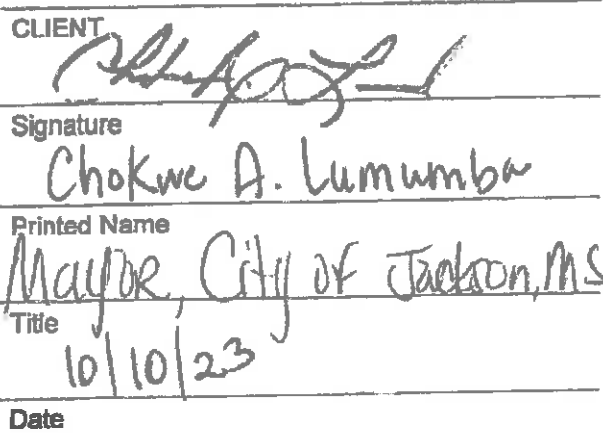 CLIENT
Signature
Chokwe A. Lumumba
Printed Name
Mayor, City of Jackson, MS
Title
10/10/23
Date